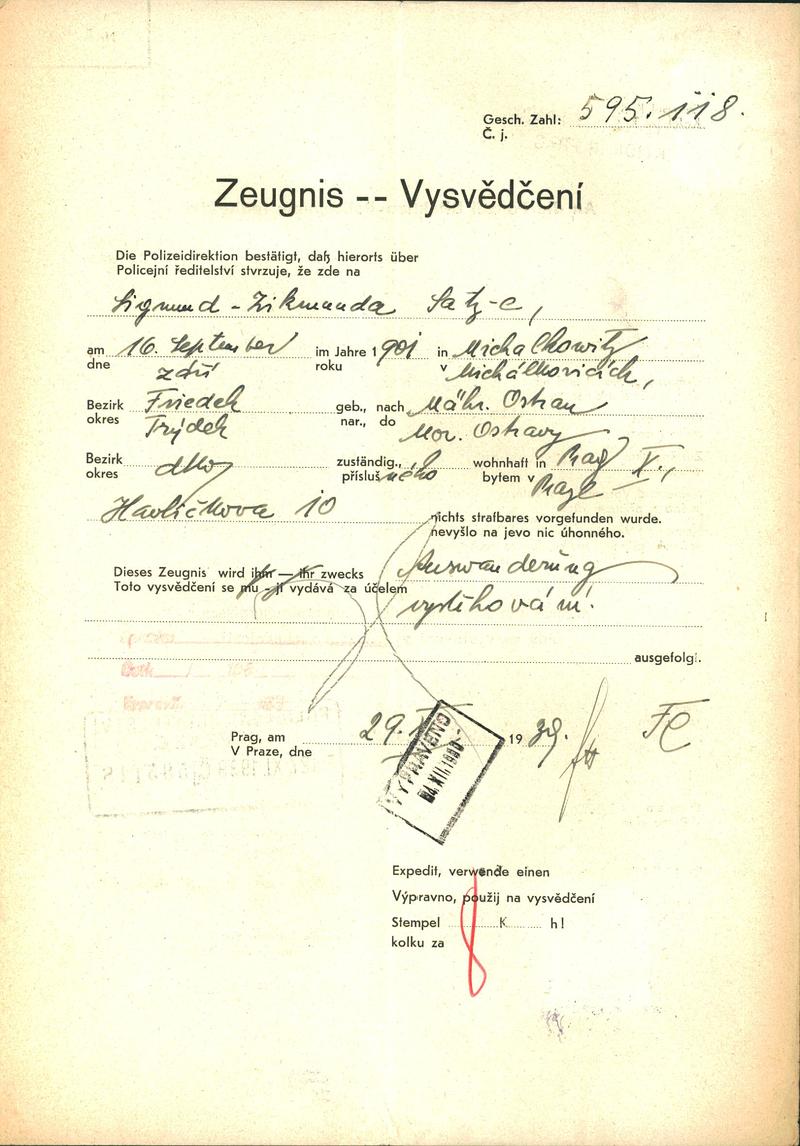 Gesch. Zahl: 595.118.
Č. j.
Zeugnis -- Vysvědčení
Die Polizeidirektion bestätigt, daß hierorts über
Policejní ředitelství stvrzuje, že zde na
Sigmund - Zikmunda Satz-e,
am 16. September im Jahre 1901 in Michalkowitz
dne září roku v Michálkovicích,
Bezirk Friedek geb., nach Mähr. Ostrau
okres Frýdek nar., do Mor. Ostravy
Bezirk dtto zuständig., wohnhaft in Prag X.,
okres přísluš ného bytem v Praze
Havlíčkova 10 nichts strafbares vorgefunden wurde.
nevyšlo na jevo nic úhonného.
Dieses Zeugnis wird ihm — ihr zwecks Auswanderung
Toto vysvědčení se mu - jí vydává za účelem vystěhování.
ausgefolgt.
Prag, am 29. 1939.
V Praze, dne
VYPRAVENO
04.XII.1939
Expedit, verwende einen
Výpravno, použij na vysvědčení
Stempel K h!
kolku za